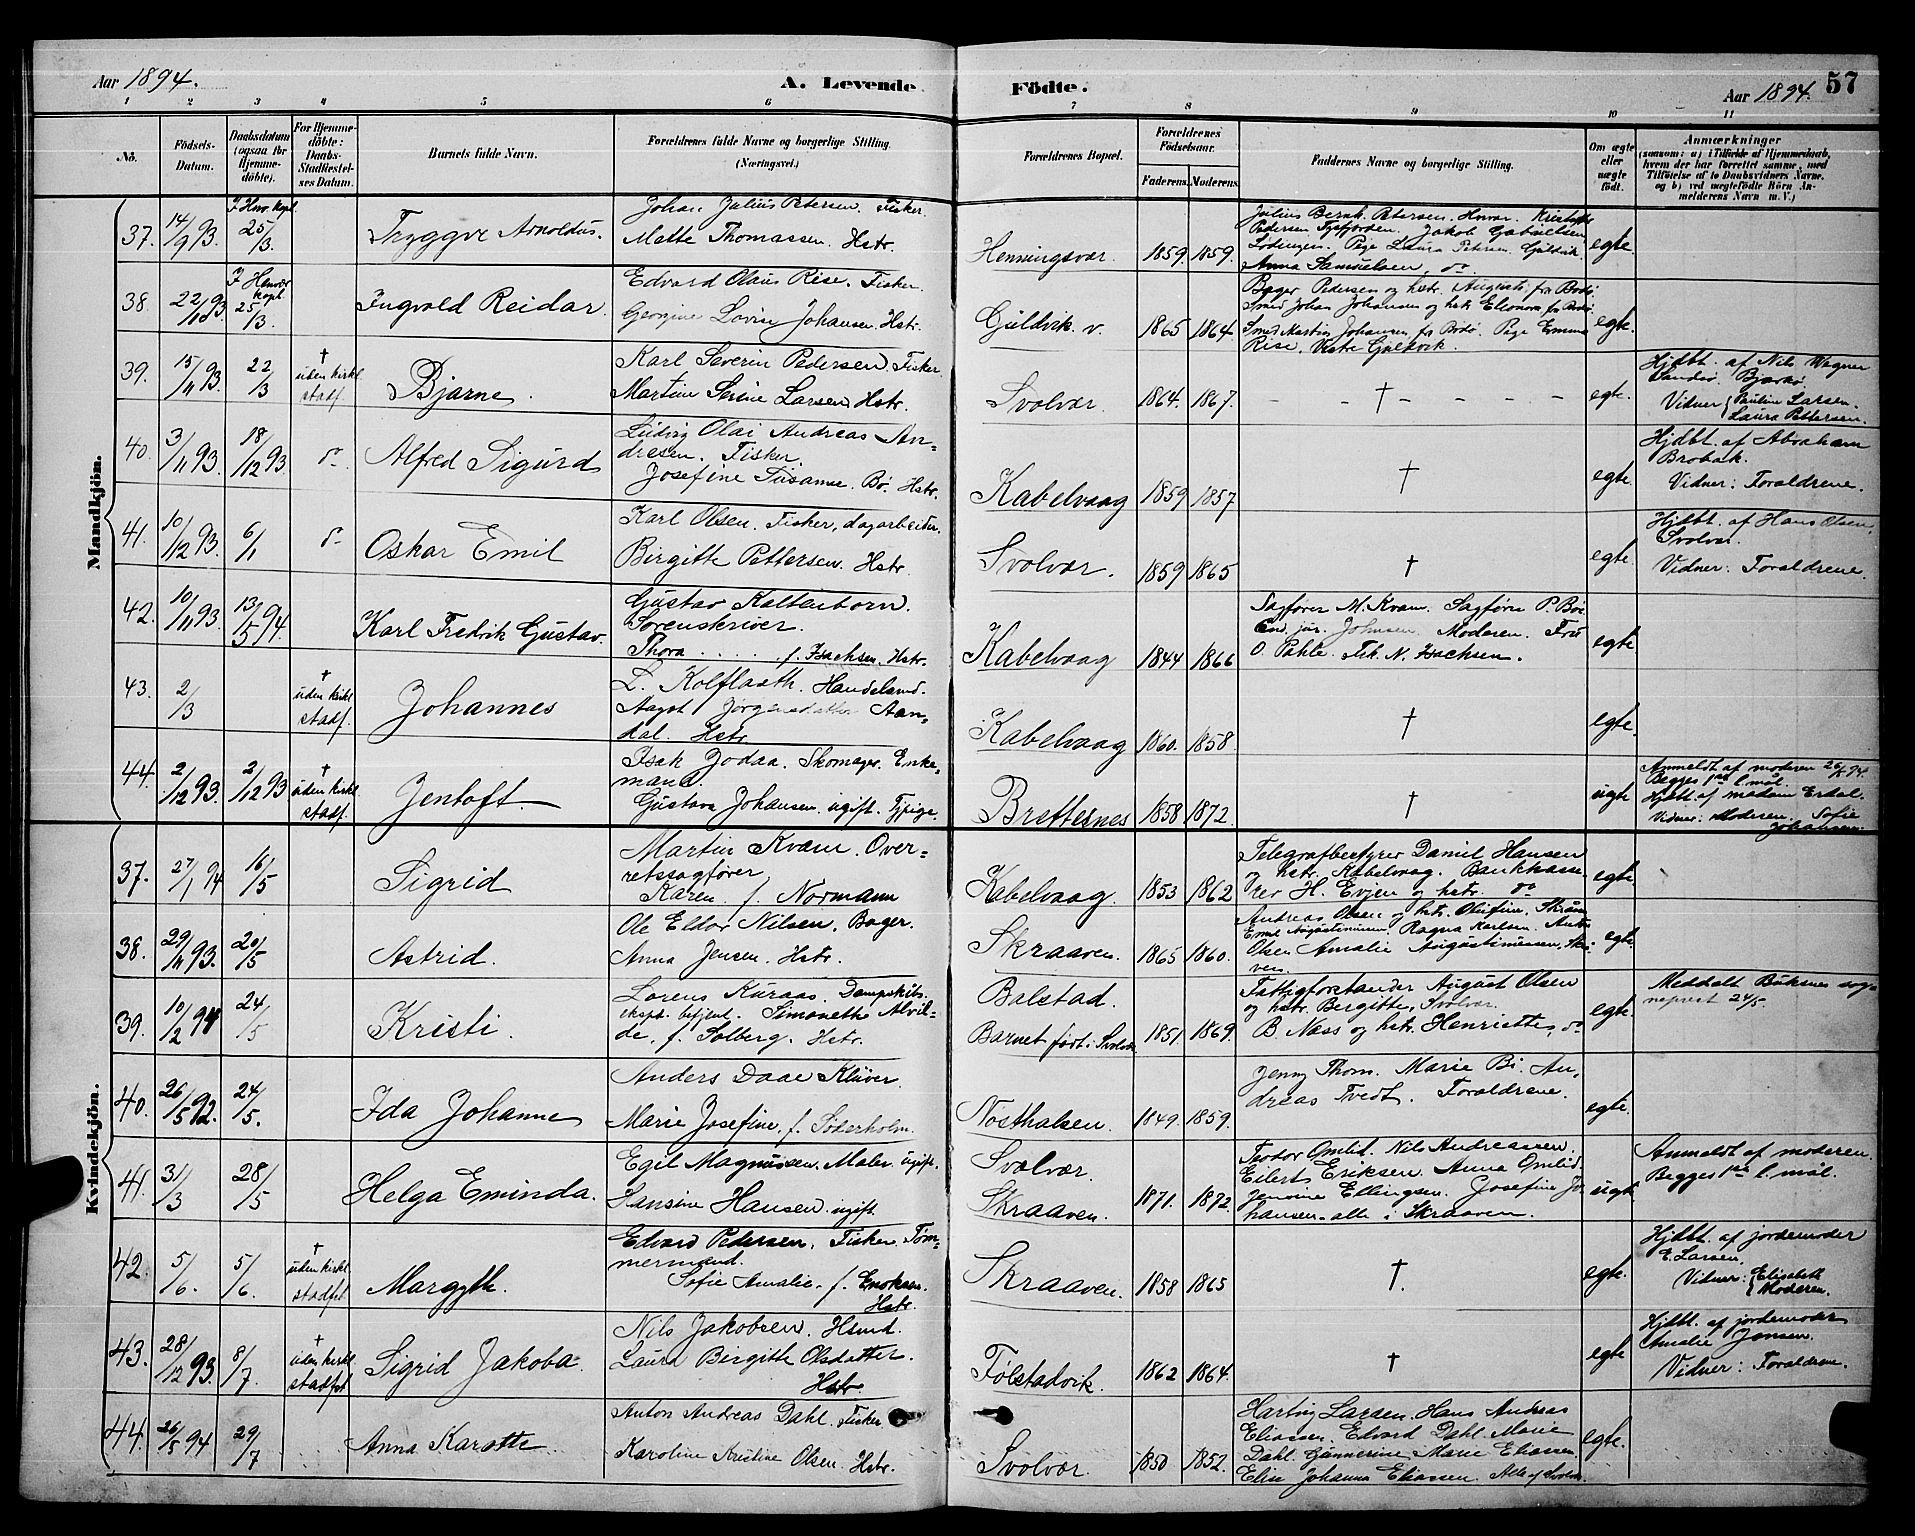 Aar 1894.
A. Levende
Födte.
Aar 1894.
57
1 2 3 4 5 6 7 8 9 10 11
No.
Födsels-
Datum.
Daabsdatum
(ogsaa for
Hjemme-
döbte).
For Hjemme-
döbte:
Daabs-
Stadfæstel-
ses Datum.
Barnets fulde Navn.
Forældrenes fulde Navne og borgerlige Stilling.
(Næringsvei.)
Forældrenes Bopæl.
Forældrenes
Födselsaar.
Faderens. Moderens.
Faddernes Navne og borgerlige Stilling.
Om ægte
eller
uægte
födt.
Anmærkninger
(saasom: a) i Tilfælde af Hjemmedaab,
hvem der har forrettet samme, med
Tilföielse af to Daabsvidners Navne,
og b) ved uægtefödte Börn An-
melderens Navn m. V.)
Mandkjön.
37. 14/9 93. 25/3. Tryggve Arnoldus.
Johan Julius Petersen. Fisker.
Mette Thomassen. Hstr.
Henningsvær. 1859. 1859.
Julius Bernh. Petersen. Henvær.
Pedersen Tysfjorden. Jakob
Lødingen. Pige Laura Petersen
Anna Samuelsen, do
egte.
38. 22/10 93 25/3. Ingvald Reidar.
Edvard Olaus Rise. Fisker.
Georgine Lovise Johansen. Hstr.
Guldvik v. 1865 1864.
Bager Pedersen og hstr. Augusta fra Bodø.
Smed Johan Johansen og hstr. Elonora fr Bodø
Smed Martin Johansen fr Bodø. Pige Emma
Rise. Vestre Guldvik.
egte.
39. 15/11 93. 22/3 † uden kirkl. stadf. Bjarne.
Karl Severin Pedersen. Fisker.
Martine Serine Larsen Hstr.
Svolvær. 1864. 1867. †
egte.
Hjdbt. af Nils Wagner
Sandsø. Bjarkø.
Vidner { Pauline Larsen.
Laura Pettersen.
40. 3/11 93. 18/12 93. do Alfred Sigurd
Ludvig Olai Andreas An-
dresen. Fisker.
Josefine Susanne. Bø. Hstr.
Kabelvaag 1859 1857. †
egte.
Hjdbt. af Abraham
Brobak.
Vidner: Forældrene.
41. 10/12 93. 6/1 do Oskar Emil
Karl Olsen. Fisker, dagarbeider.
Birgitte Pettersen. Hstr.
Svolvær. 1859 1865 †
egte.
Hjdbt. af Hans Olsen,
Svolvær.
Vidner: Forældrene.
42. 10/11 93. 13/5 94. Karl Fredrik Gustav.
Gustav Kaltenborn.
Sorenskriver.
Thora . . . . f. Isachsen. Hstr.
Kabelvaag 1844 1866
Sagfører M. Kvam. Sagfører P. Bøe
Cand. jur. Johnsen. Moderen. Fru
O. Pahle. Frk. N. Isachsen.
egte
43. 2/3 † uden kirkl. stadf. Johannes
L. Kolflaath. Handelsmd.
Aagot Jørgensdatter Aan-
dal. Hstr.
Kabelvaag 1860. 1858. †
egte.
44. 2/12 93. 2/12 93 † uden kirkl. stadf. Jentoft.
Isak Jodaa. Skomager. Enke-
mand.
Gustava Johansen. ugift. Tjpige.
Brettesnes 1858 1872. †
uegte
Anmeldt af moderen 26/5 94.
Begges 1ste l. mål.
Hjdbt. af madam Erdal.
Vidner: Moderen. Sofie
Johansen.
Kvindekjön.
37. 27/1 94 16/5 Sigrid
Martin Kvam. Over-
retssagfører.
Karen f. Normann
Kabelvaag. 1853 1862
Telegrafbestyrer Daniel Hansen
og hstr. Kabelvaag. Bankkasse-
rer H. Evjen og hstr. do
egte.
38. 29/11 93. 20/5 Astrid.
Ole Eldor Nilsen. Bager.
Anna Jensen. Hstr.
Skraaven. 1865 1860.
Andreas Olsen og hstr. Olufine. Skråven
Emil Augustinusen. Ragna Karlsen. Anton
Olsen Amalie Augustinussen, Skra-
ven.
egte
39. 10/2 94 24/5 Kristi
Lorens Kuraas. Dampskibs-
ekspd. betjent. Simonette Alvil-
de, f. Solberg. Hstr.
Balstad.
Barnet født i Svolvær 1851. 1869.
Fattigforstander August Olsen
og hstr. Bergitte, Svolvær.
B. Næss og hstr. Henriette, do
egte.
Meddelt Buksnes sogn
neprest 24/5
40. 26/5 92. 24/5. Ida Johanne
Anders Daae Klüver.
Marie Josefine, f. Söderholm.
Nøsthalsen. 1849. 1859.
Jenny Thom. Marie Bi. An-
dreas Tvedt. Forældrene.
egte.
41. 31/3 28/5 Helga Eminda.
Egil Magnussen. Maler. ugift.
Hansine Hansen. ugift.
Svolvær.
Skraaven. 1871. 1872.
Teodor Omlid. Nils Andreassen.
Eilert Eriksen. Anna Omlid.
Jensine Ellingsen. Josefine Jo-
hansen. alle i Skraaven.
uegte
Anmeldt af moderen.
Begges 1ste l. mål.
42. 5/6. 5/6. † uden kirkl. stadfst Margyth.
Edvard Pedersen. Fisker. Töm-
mermand.
Sofie Amalie. f. Enoksen.
Hstr.
Skraaven. 1858 1865 †.
egte.
Hjdbt. af jordemoder
E. Larsen.
Vidner: { Elisabeth
Moderen.
43. 28/12 93. 8/7 † uden kirkl. stadfst Sigrid Jakoba.
Nils Jakobsen. Hsmd.
Laura Birgitte Olsdatter.
Hstr.
Følstadvik. 1862 1864. †
egte
Hjdbt. af jordemoder
Amalie Jensen.
Vidner: Forældrene.
44. 26/5 94 29/7 Anna Karotte.
Anton Andreas Dahl. Fisker
Karoline Kristine Olsen. Hstr.
Svolvær. 1850 1852.
Hartvig Larsen. Hans Andreas
Eliassen. Edvard Dahl. Marie
Dahl. Gunnerine Marie Eliassen.
Elise Johanna Eliassen. Alle af Svolvær
egte.